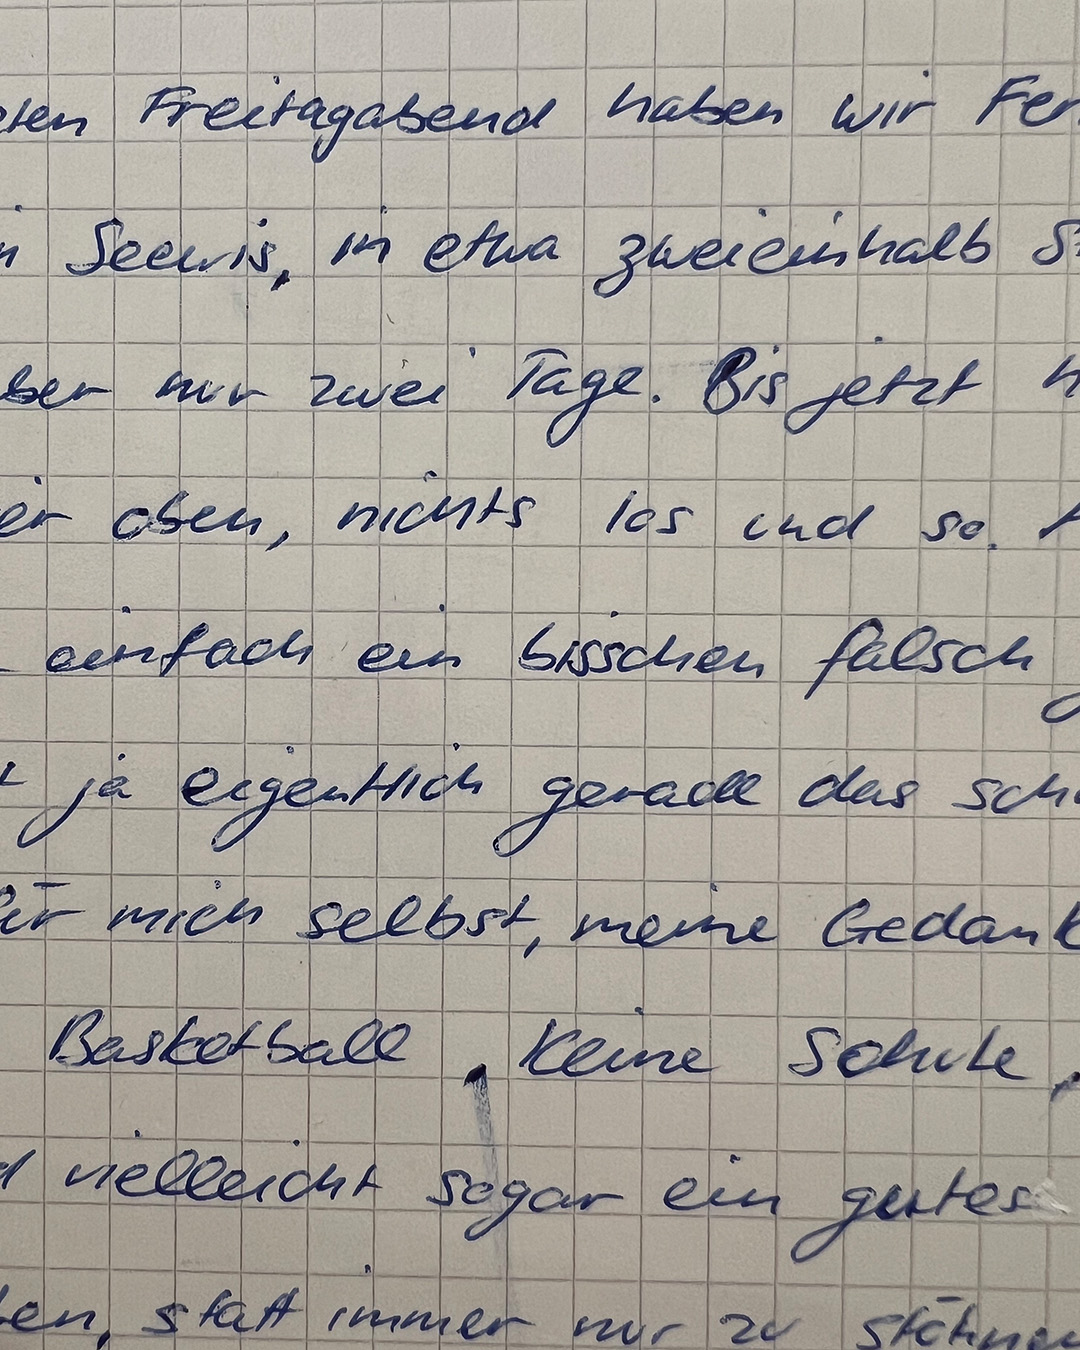 Freitagabend haben wir Fer
Seewis, in etwa zweieinhalb S
ber nur zwei Tage. Bis jetzt h
er oben, nichts los und so.
einfach ein bisschen falsch
ja eigentlich gerade das sch
für mich selbst, meine Gedank
Basketball, keine Schule,
vielleicht sogar ein gutes
ten, statt immer nur zu stöhnen